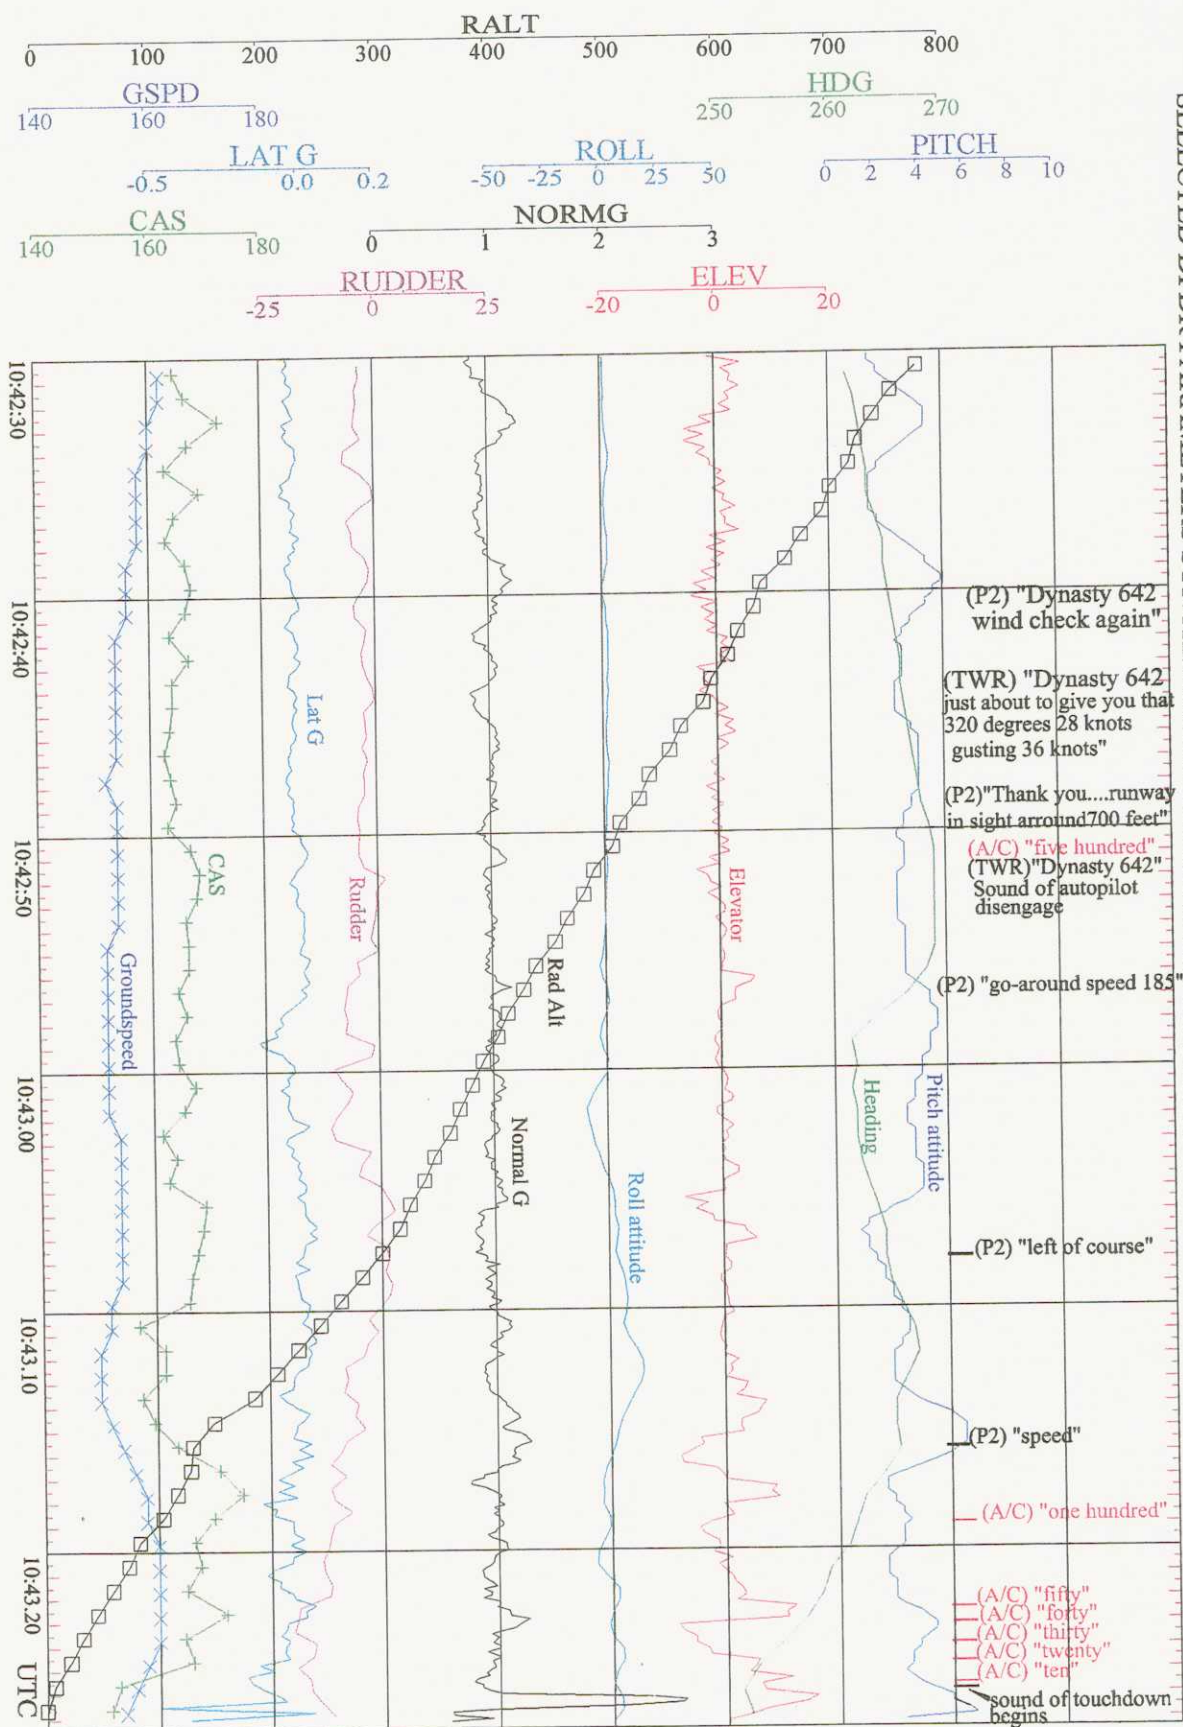 RALT
0 100 200 300 400 500 600 700 800
GSPD
140 160 180
HDG
250 260 270
LAT G
-0.5 0.0 0.2
ROLL
-50 -25 0 25 50
PITCH
0 2 4 6 8 10
CAS
140 160 180
NORMG
0 1 2 3
RUDDER
-25 0 25
ELEV
-20 0 20
10:42:30
10:42:40
10:42:50
10:43.00
10:43.10
10:43.20
UTC
Groundspeed
CAS
Lat G
Rudder
Rad Alt
Normal G
Roll attitude
Elevator
Heading
Pitch attitude
(P2) "Dynasty 642
wind check again"
(TWR) "Dynasty 642
just about to give you that
320 degrees 28 knots
gusting 36 knots"
(P2)"Thank you....runway
in sight arround700 feet"
(A/C) "five hundred"
(TWR)"Dynasty 642"
Sound of autopilot
disengage
(P2) "go-around speed 185"
(P2) "left of course"
(P2) "speed"
(A/C) "one hundred"
(A/C) "fifty"
(A/C) "forty"
(A/C) "thirty"
(A/C) "twenty"
(A/C) "ten"
sound of touchdown
begins